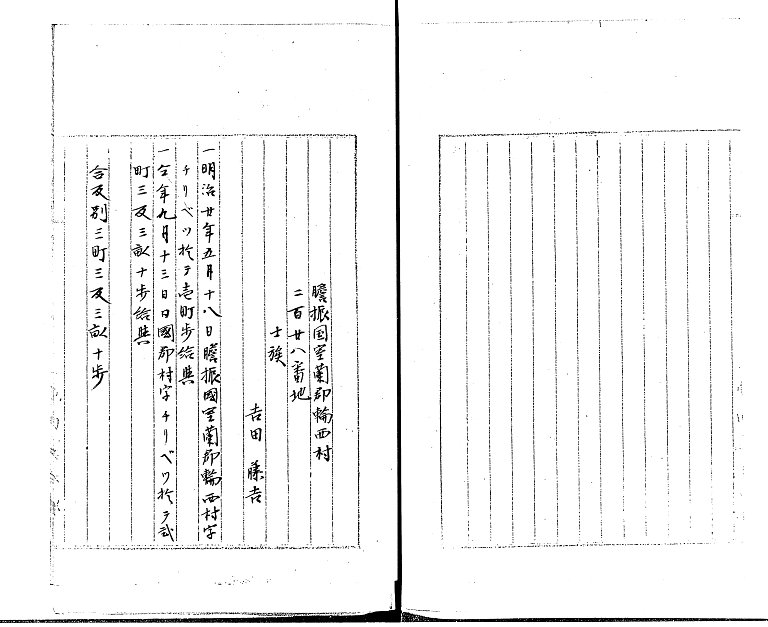 膽振国室蘭郡輪西村
二百廿八番地
士族
吉田勝吉
一明治廿年五月十八日膽振國室蘭郡輪西村字
チリベツ於テ壱町歩給與
一仝年九月十三日日國郡村字チリベツ於テ弐
町三反三畝十歩給與
合反別三町三反三畝十歩